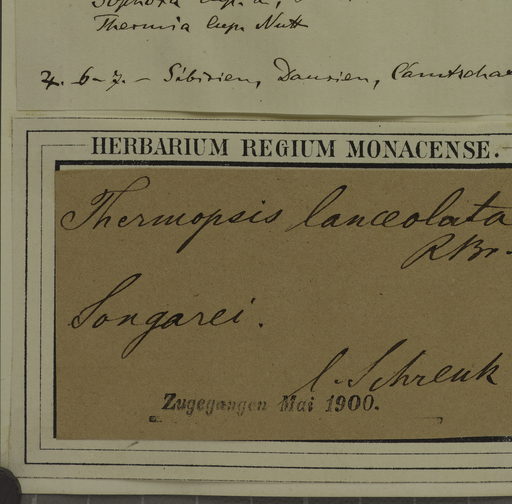 Sophora lup.
Thermia lup. Nutt
4. 6-7. - Sibirien, Daurien, Camtscha
HERBARIUM REGIUM MONACENSE.
Thermopsis lanceolata
R Br.
Songarei.
l. Schrenk
Zugegangen Mai 1900.